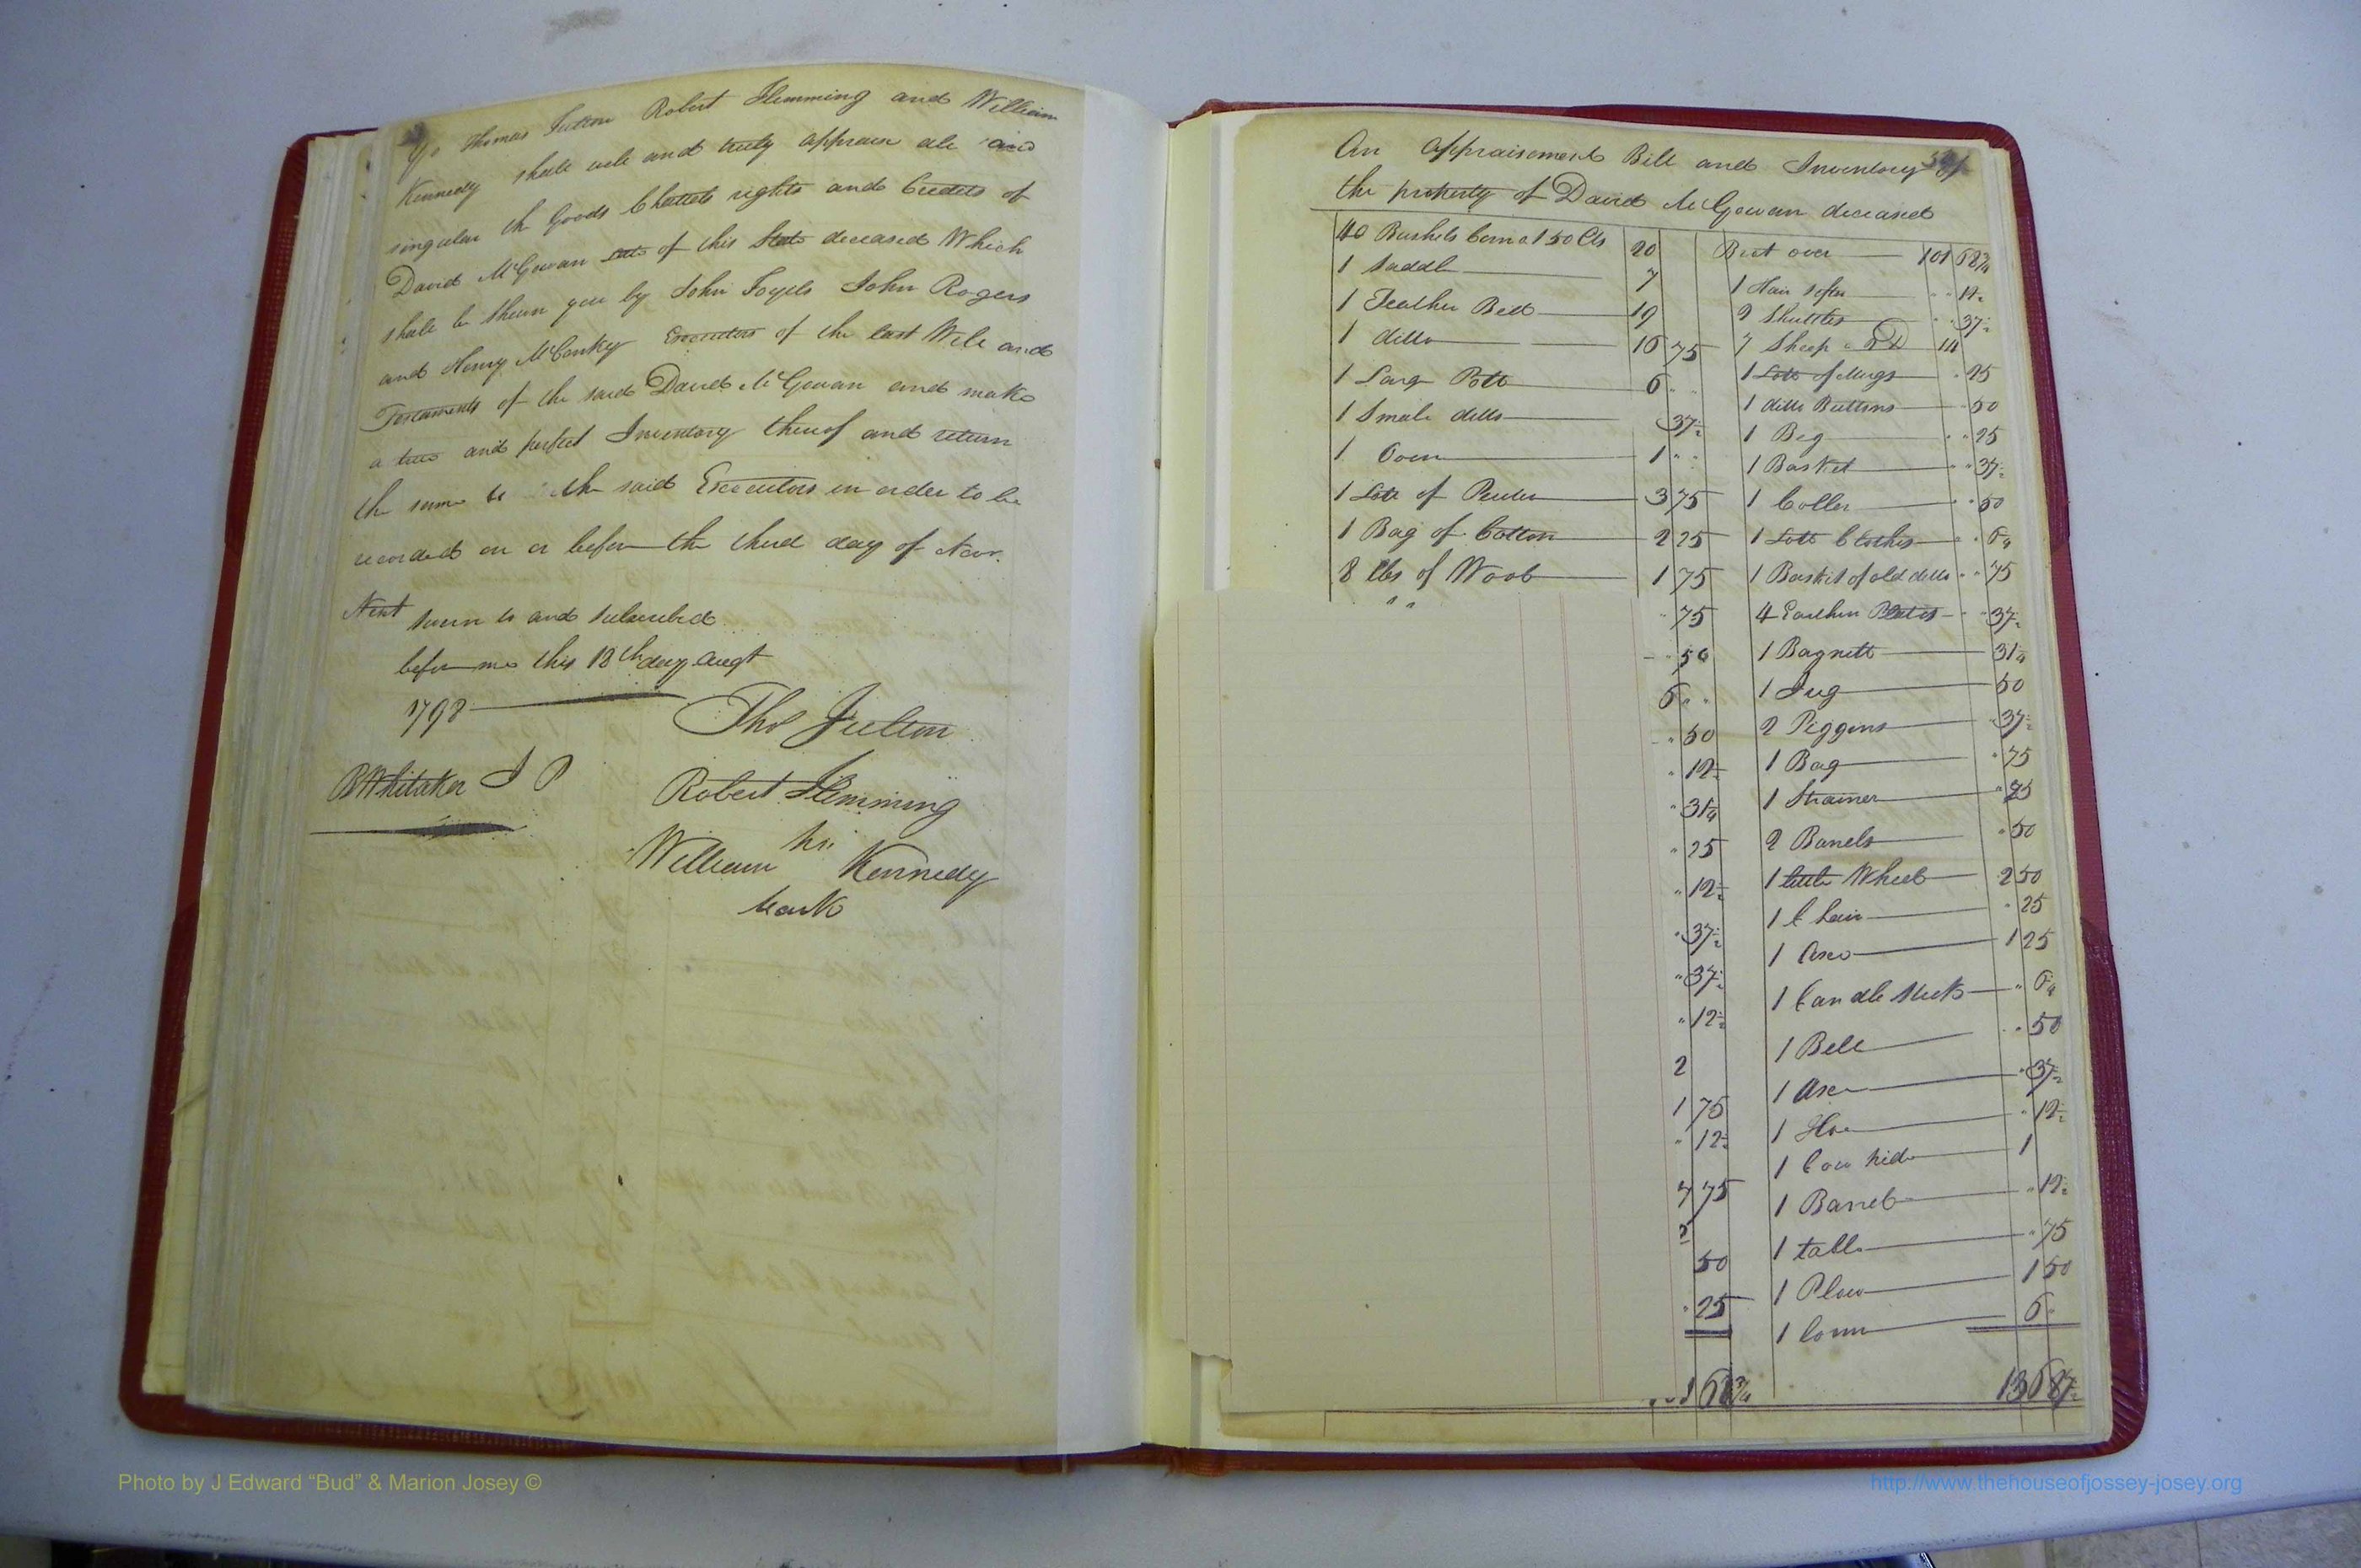 Yo Thomas Fulton Robert Flemming and William
Kennedy shall well and truly appraise all and
singular the Goods Chattels rights and Credits of
David McGowan late of this State deceased Which
shall be shewn you by John John Rogers
and Henry McConkey Executors of the last Will and
Testaments of the said David McGowan and make
a true and perfect Inventory thereof and return
the same to the said Executors in order to be
recorded on or before the third day of Novr.
Next sworn to and subscribed
before me this 18th day Augt
1798
Thos Fulton
B Whitaker J P
Robert Flemming
his
William Kennedy
mark
An Appraisement Bill and Inventory of
the property of David McGowan deceased
40 Bushels Corn a 50 Cts 20
1 Saddle 7
1 Feather Bed 19
1 ditto 16 75
1 Large Pott 6 " "
1 Small ditto 37½
1 Oven 1 " "
1 Lott of Peuter 3 75
1 Bag of Cotton 2 25
8 lbs of Wool 1 75
" "
" 75
" 50
6 " "
" 50
" 12½
" 31¼
" 25
" 12½
" 37½
" 37½
" 12½
2
1 75
" 12½
7 75
50
" 25
1 68¾
Brot over 101 68¾
1 Hair sifter " " 12½
2 Shuttles " " 37½
7 Sheep 2 D 14
1 Lott of Mugs " 25
1 ditto Buttons " 50
1 Beg " " 25
1 Basket " " 37½
1 Coller " " 50
1 Lott Clothes " " 6¼
1 Basket of old ditto " " 75
4 Earthen Plates " " 37½
1 Bagnett 31¼
1 Jug 50
2 Piggons " 37½
1 Bag " 75
1 Strainer " 25
2 Barrels " 50
1 little Wheel 2 50
1 Chair " 25
1 Axe 1 25
1 Candle stick " 6¼
1 Bell " 50
1 Axe " 37½
1 Hoe " 12½
1 Cow hide 1
1 Barrel " 12½
1 table " 75
1 Plow 1 50
1 6 "
136 87½
Photo by J Edward “Bud” & Marion Josey ©
http://www.thehouseofjossey-josey.org